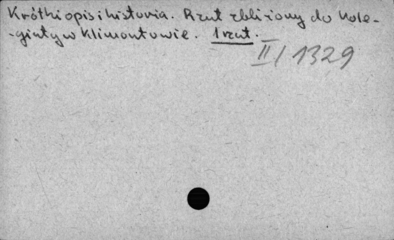 Krótki opis i historia. Rzut zbliżony do Kole-
-giaty w Klimontowie. 1 rzut.
II/1329